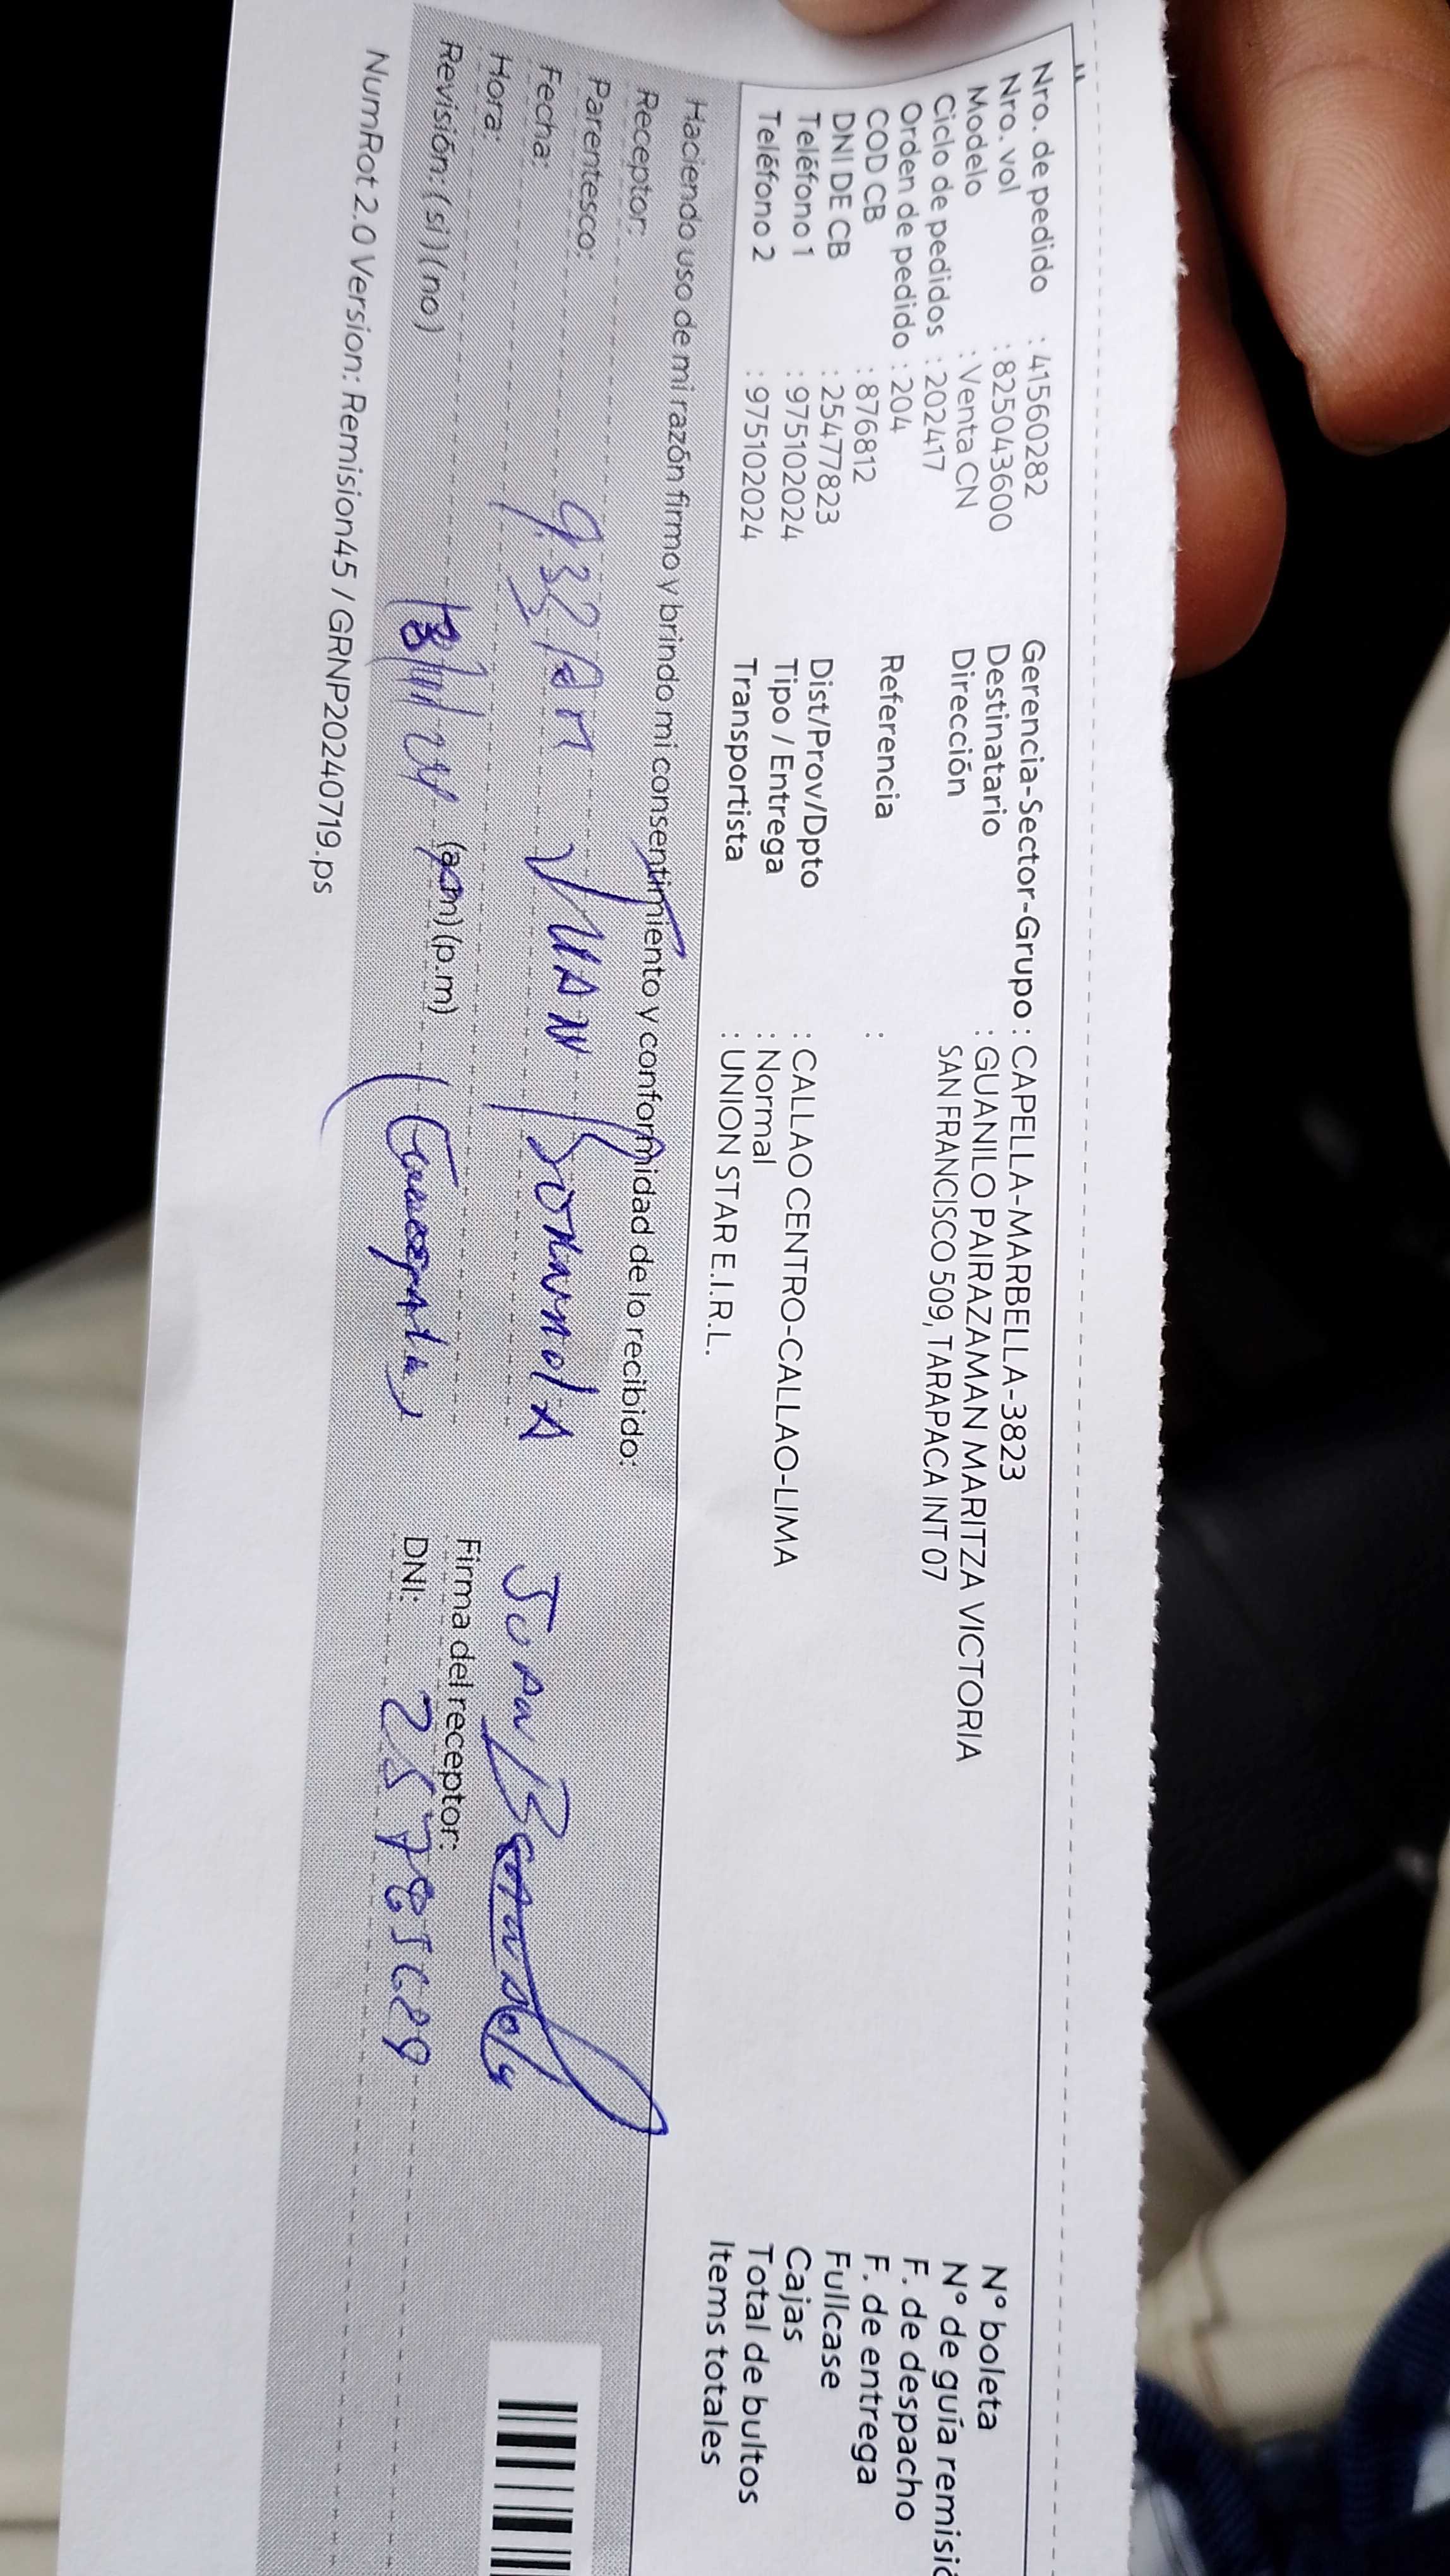 Nro. de pedido : 41560282
Nro. vol : 825043600
Modelo : Venta CN
Ciclo de pedidos : 202417
Orden de pedido : 204
COD CB : 876812
DNI DE CB : 25477823
Teléfono 1 : 975102024
Teléfono 2 : 975102024
Gerencia-Sector-Grupo : CAPELLA-MARBELLA-3823
Destinatario : GUANILO PAIRAZAMAN MARITZA VICTORIA
Dirección SAN FRANCISCO 509, TARAPACA INT 07
Referencia :
Dist/Prov/Dpto : CALLAO CENTRO-CALLAO-LIMA
Tipo / Entrega : Normal
Transportista : UNION STAR E.I.R.L.
N° boleta
N° de guía remisió
F. de despacho
F. de entrega
Fullcase
Cajas
Total de bultos
Items totales
Haciendo uso de mi razón firmo y brindo mi consentimiento y conformidad de lo recibido:
Receptor:
Parentesco:
Fecha: 9.32/AM JUAN
Hora:
Revisión: (si) (no) (a.m) (p.m)
Firma del receptor:
DNI:
NumRot 2.0 Version: Remision45 / GRNP20240719.ps